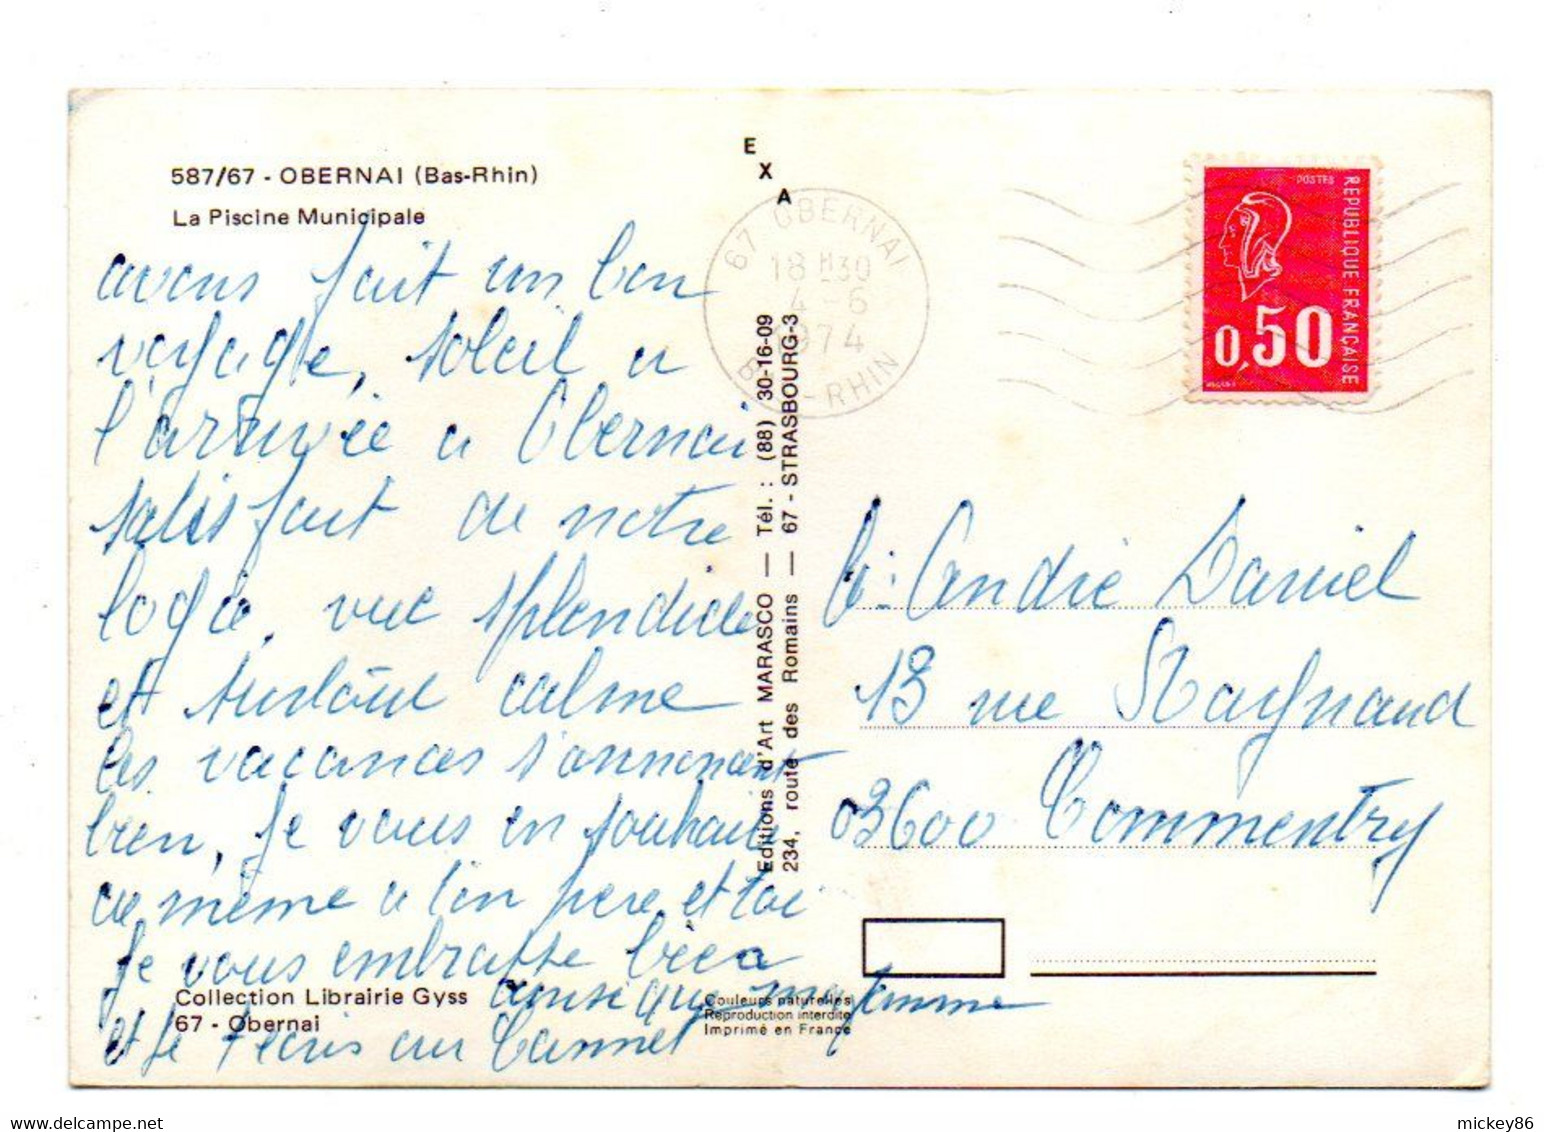 587/67 - OBERNAI (Bas-Rhin)
La Piscine Municipale
avons fait un bon
voyage, soleil a
l'arrivée a Obernai
satisfait de notre
logis, vue splendide
et surtout calme
les vacances s'annoncent
bien, je vous en souhaite
de même a ton père et toi
je vous embrasse bien
ainsi que ma femme
et je t'écris au Cannet
Collection Librairie Gyss
67 - Obernai
E
X
A
Editions d'Art MARASCO — Tél. : (88) 30-16-09
234, route des Romains — 67 - STRASBOURG-3
Couleurs naturelles
Reproduction interdite
Imprimé en France
67 OBERNAI
18 H30
4-6
1974
BAS-RHIN
POSTES
REPUBLIQUE FRANÇAISE
0,50
André Daniel
13 rue Raynaud
03600 Commentry
mickey86